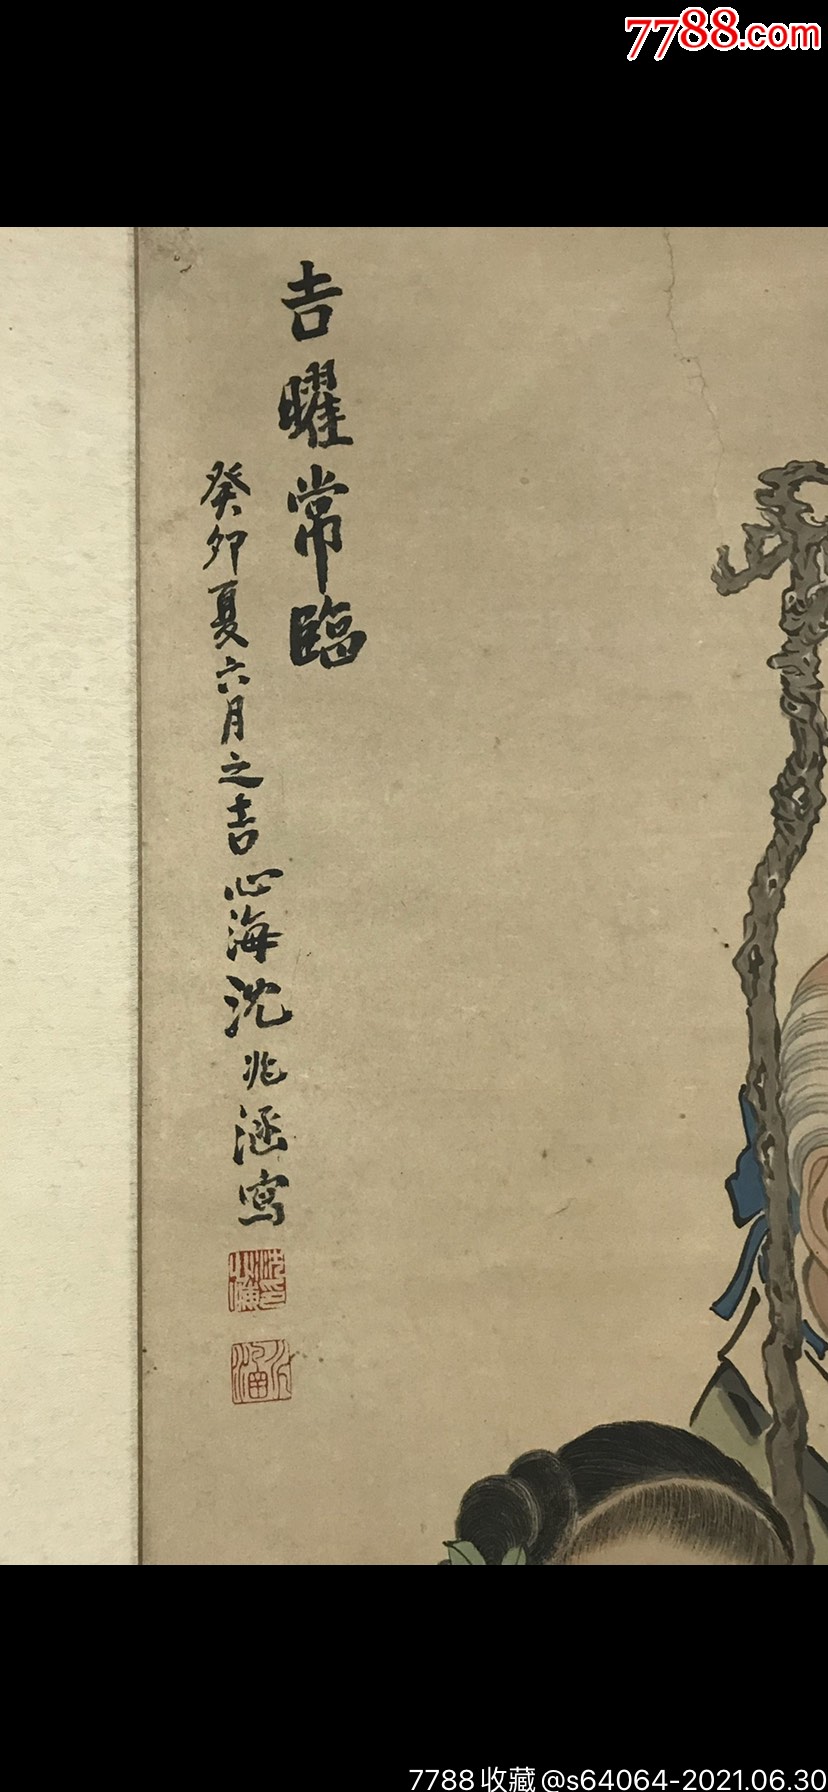 7788.com
吉曜常臨
癸卯夏六月之吉心海沈兆涵寫
7788收藏@s64064-2021.06.30